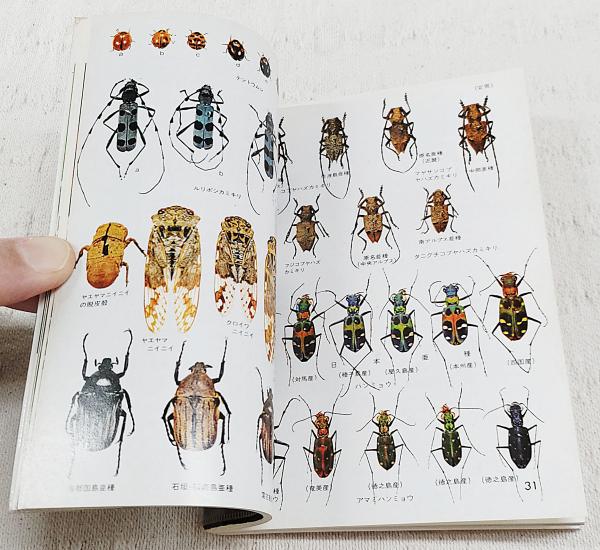 a
b
c
d
テントウムシ
a
b
ルリボシカミキリ
ヤエヤマニイニイ
の脱皮殻
ヤエヤマ
ニイニイ
クロイワ
ニイニイ
与那国島亜種
石垣・西表島亜種
(変異)
コブヤハズカミキリ
基名亜種
(近畿)
マヤサンコブ
ヤハズカミキリ
中部亜種
フジコブヤハズ
カミキリ
基名亜種
(中央アルプス)
南アルプス亜種
タニグチコブヤハズカミキリ
日本亜種
(対馬産)
(種子島産)
(屋久島産)
(本州産)
(四国産)
ハンミョウ
(奄美産)
(徳之島産)
(徳之島産)
(徳之島産)
アマミハンミョウ
31